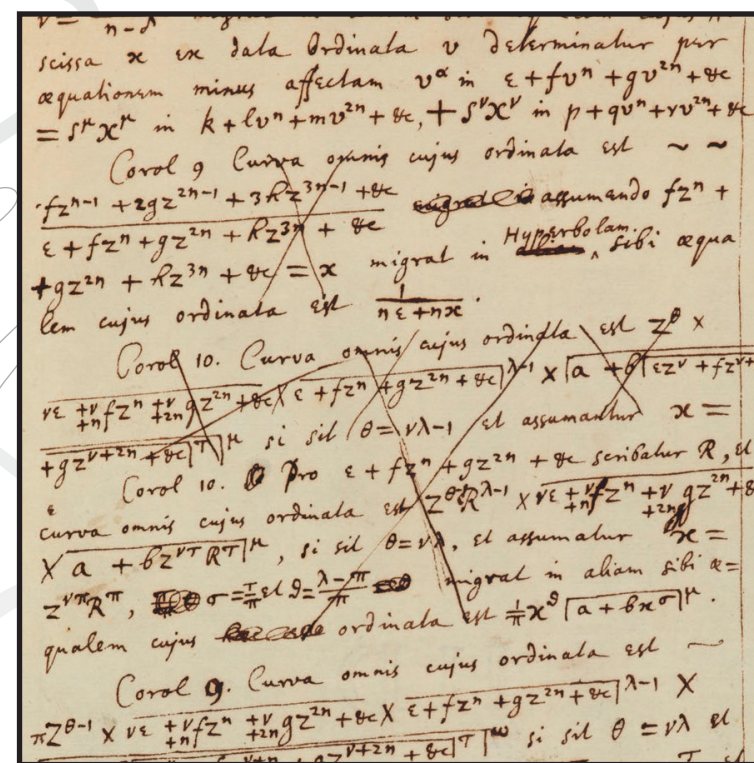 scissa x ex data Ordinata v determinatur per
æquationem minus affectam v^α in ε + fv^η + gv^2η + &c
= s^μ x^μ in k + lv^η + mv^2η + &c, + s^ν x^ν in p + qv^η + rv^2η + &c
Corol 9 Curva omnis cujus ordinata est ~ ~
fz^η-1 + 2gz^2η-1 + 3hz^3η-1 + &c assumendo fz^η +
ε + fz^η + gz^2η + hz^3η + &c
Hyperbolam
+ gz^2η + hz^3η + &c = x migrat in ‸ sibi æqua
lem cujus ordinata est 1/(ηε + ηx).
Corol 10. Curva omnis cujus ordinata est z^θ ×
νε +ν+η fz^η +ν+2η gz^2η + &c × ε + fz^η + gz^2η + &c|^λ-1 × a + b εz^ν + fz^ν+
+ gz^ν+2η + &c|^τ|^μ si sit θ = νλ-1 et assumantur x =
Corol 10. Pro ε + fz^η + gz^2η + &c scribatur R, et
curva omnis cujus ordinata est z^θ-1 R^λ-1 × νε +ν+η fz^η +ν+2η gz^2η + &
× a + bz^ντ R^τ|^μ, si sit θ = νλ, et assumatur x =
z^νπ R^π, σ = τ/π et ϑ = (λ-π)/π migrat in aliam sibi æ=
qualem cujus ordinata est 1/π x^ϑ a + bx^σ|^μ.
Corol 9. Curva omnis cujus ordinata est ~
πz^θ-1 × νε +ν+η fz^η +ν+2η gz^2η + &c × ε + fz^η + gz^2η + &c|^λ-1 ×
gz^ν+2η + &c|^τ|^ω si sit θ = νλ et